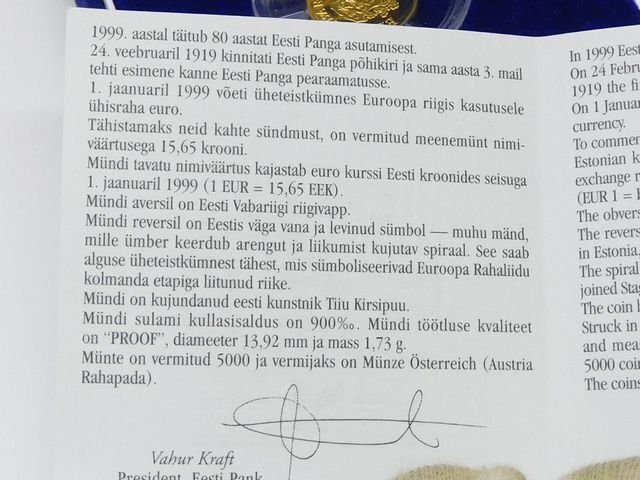 1999. aastal täitub 80 aastat Eesti Panga asutamisest.
24. veebruaril 1919 kinnitati Eesti Panga põhikiri ja sama aasta 3. mail
tehti esimene kanne Eesti Panga pearaamatusse.
1. jaanuaril 1999 võeti üheteistkümnes Euroopa riigis kasutusele
ühisraha euro.
Tähistamaks neid kahte sündmust, on vermitud meenemünt nimi-
väärtusega 15,65 krooni.
Mündi tavatu nimiväärtus kajastab euro kurssi Eesti kroonides seisuga
1. jaanuaril 1999 (1 EUR = 15,65 EEK).
Mündi aversil on Eesti Vabariigi riigivapp.
Mündi reversil on Eestis väga vana ja levinud sümbol — muhu mänd,
mille ümber keerdub arengut ja liikumist kujutav spiraal. See saab
alguse üheteistkümnest tähest, mis sümboliseerivad Euroopa Rahaliidu
kolmanda etapiga liitunud riike.
Mündi on kujundanud eesti kunstnik Tiiu Kirsipuu.
Mündi sulami kullasisaldus on 900‰. Mündi töötluse kvaliteet
on “PROOF”, diameeter 13,92 mm ja mass 1,73 g.
Münte on vermitud 5000 ja vermijaks on Münze Österreich (Austria
Rahapada).
Vahur Kraft
President, Eesti Pank
In 1999 Eest
On 24 Febru
1919 the fi
On 1 Januar
currency.
To commem
Estonian k
exchange r
(EUR 1 =
The obvers
The revers
in Estonia,
The spiral
joined Stag
The coin
Struck in
and mea
5000 coin
The coins